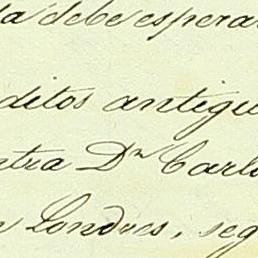 da debe esperar
ditos antigu
ntra Dn Carlo
n Londres, seg